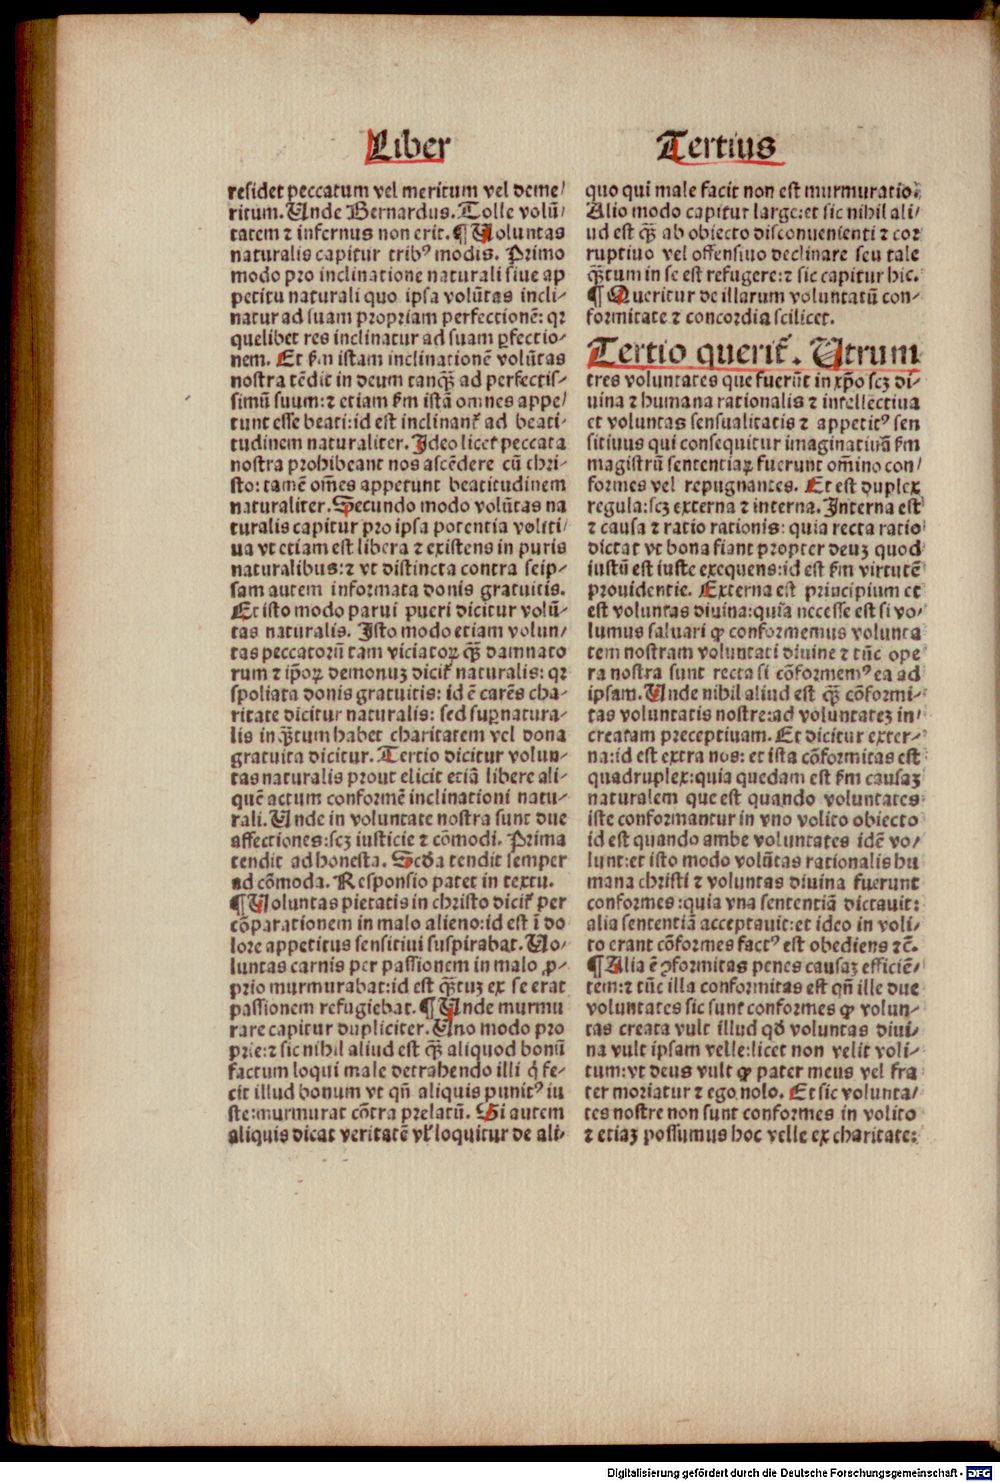 Liber
residet peccatum vel meritum vel deme/
ritum. Unde Bernardus. Tolle volū/
tatem ⁊ infernus non erit. ¶ Voluntas
naturalis capitur tribꝰ modis. Primo
modo pro inclinatione naturali siue ap
petitu naturali quo ipsa volūtas incli-
natur ad suam propriam perfectionē: qꝛ
quelibet res inclinatur ad suam ꝑfectio-
nem. Et ẜm istam inclinationē volūtas
nostra tēdit in deum tanqꝫ̄ ad perfectis-
simū suum: ⁊ etiam ẜm istā omnes appe/
tunt esse beati: id est inclinant᷑ ad beati-
tudinem naturaliter. Ideo licet peccata
nostra prohibeant nos ascēdere cū chri-
sto: tamē om̄es appetunt beatitudinem
naturaliter. Secundo modo volūtas na
turalis capitur pro ipsa potentia voliti/
ua vt etiam est libera ⁊ existens in puris
naturalibus: ⁊ vt distincta contra seip-
sam autem informata donis gratuitis.
Et isto modo parui pueri dicitur volū-
tas naturalis. Isto modo etiam volun/
tas peccatorū tam viciatoꝝ qꝫ̄ damnato
rum ⁊ ip̄oꝝ demonuꝫ dicit᷑ naturalis: qꝛ
spoliata donis gratuitis: id ē carēs cha-
ritate dicitur naturalis: sed suꝑnatura-
lis in qꝫ̄tum habet charitatem vel dona
gratuita dicitur. Tertio dicitur volun-
tas naturalis prout elicit etiā libere ali-
quē actum conformē inclinationi natu-
rali. Unde in voluntate nostra sunt due
affectiones: scꝫ iusticie ⁊ cōmodi. Prima
tendit ad honesta. Scd̄a tendit semper
ad cōmoda. Responsio patet in textu.
¶ Voluntas pietatis in christo dicit᷑ per
cōparationem in malo alieno: id est ī do
lore appetitus sensitiui suspirabat. Vo/
luntas carnis per passionem in malo ꝓ-
prio murmurabat: id est qꝫ̄tuꝫ ex se erat
passionem refugiebat. ¶ Unde murmu
rare capitur dupliciter. Uno modo pro
prie: ⁊ sic nihil aliud est qꝫ̄ aliquod bonū
factum loqui male detrahendo illi q̇ fe-
cit illud bonum vt qn̄ aliquis punitꝰ iu
ste: murmurat cōtra prelatū. Si autem
aliquis dicat veritatē vl̓ loquitur de ali-
Tertius
quo qui male facit non est murmuratio.
Alio modo capitur large: et sic nihil ali/
ud est qꝫ̄ ab obiecto disconuenienti ⁊ cor
ruptiuo vel offensiuo declinare seu tale
qꝫ̄tum in se est refugere: ⁊ sic capitur hic.
¶ Queritur de illarum voluntatū con-
formitate ⁊ concordia scilicet.
Tertio querit᷑. Utrum
tres voluntates que fuerūt in xp̄o scꝫ di-
uina ⁊ humana rationalis ⁊ intellectiua
et voluntas sensualitatis ⁊ appetitꝰ sen
sitiuus qui consequitur imaginatiuā ẜm
magistrū sententiaꝝ fuerunt om̄ino con/
formes vel repugnantes. Et est duplex
regula: scꝫ externa ⁊ interna. Interna est
⁊ causa ⁊ ratio rationis: quia recta ratio
dictat vt bona fiant propter deuꝫ quod
iustū est iuste exequens: id est ẜm virtutē
prouidentie. Externa est principium et
est voluntas diuina: quia necesse est si vo/
lumus saluari ꝙ conformemus volunta
tem nostram voluntati diuine ⁊ tūc ope
ra nostra sunt recta si cōformemꝰ ea ad
ipsam. Unde nihil aliud est qꝫ̄ cōformi-
tas voluntatis nostre: ad voluntateꝫ in/
creatam preceptiuam. Et dicitur exter-
na: id est extra nos: et ista cōformitas est
quadruplex: quia quedam est ẜm causaꝫ
naturalem que est quando voluntates
iste conformantur in vno volito obiecto
id est quando ambe voluntates idē vo/
lunt: et isto modo volūtas rationalis hu
mana christi ⁊ voluntas diuina fuerunt
conformes: quia vna sententiā dictauit:
alia sententiā acceptauit: et ideo in voli/
to erant cōformes factꝰ est obediens ⁊c̄.
¶ Alia ē ꝯformitas penes causaꝫ efficiē-
tem: ⁊ tūc illa conformitas est qn̄ ille due
voluntates sic sunt conformes ꝙ volun-
tas creata vult illud qd̄ voluntas diui-
na vult ipsam velle: licet non velit voli-
tum: vt deus vult ꝙ pater meus vel fra
ter moriatur ⁊ ego nolo. Et sic volunta/
tes nostre non sunt conformes in volito
⁊ etiaꝫ possumus hoc velle ex charitate:
Digitalisierung gefördert durch die Deutsche Forschungsgemeinschaft - DFG